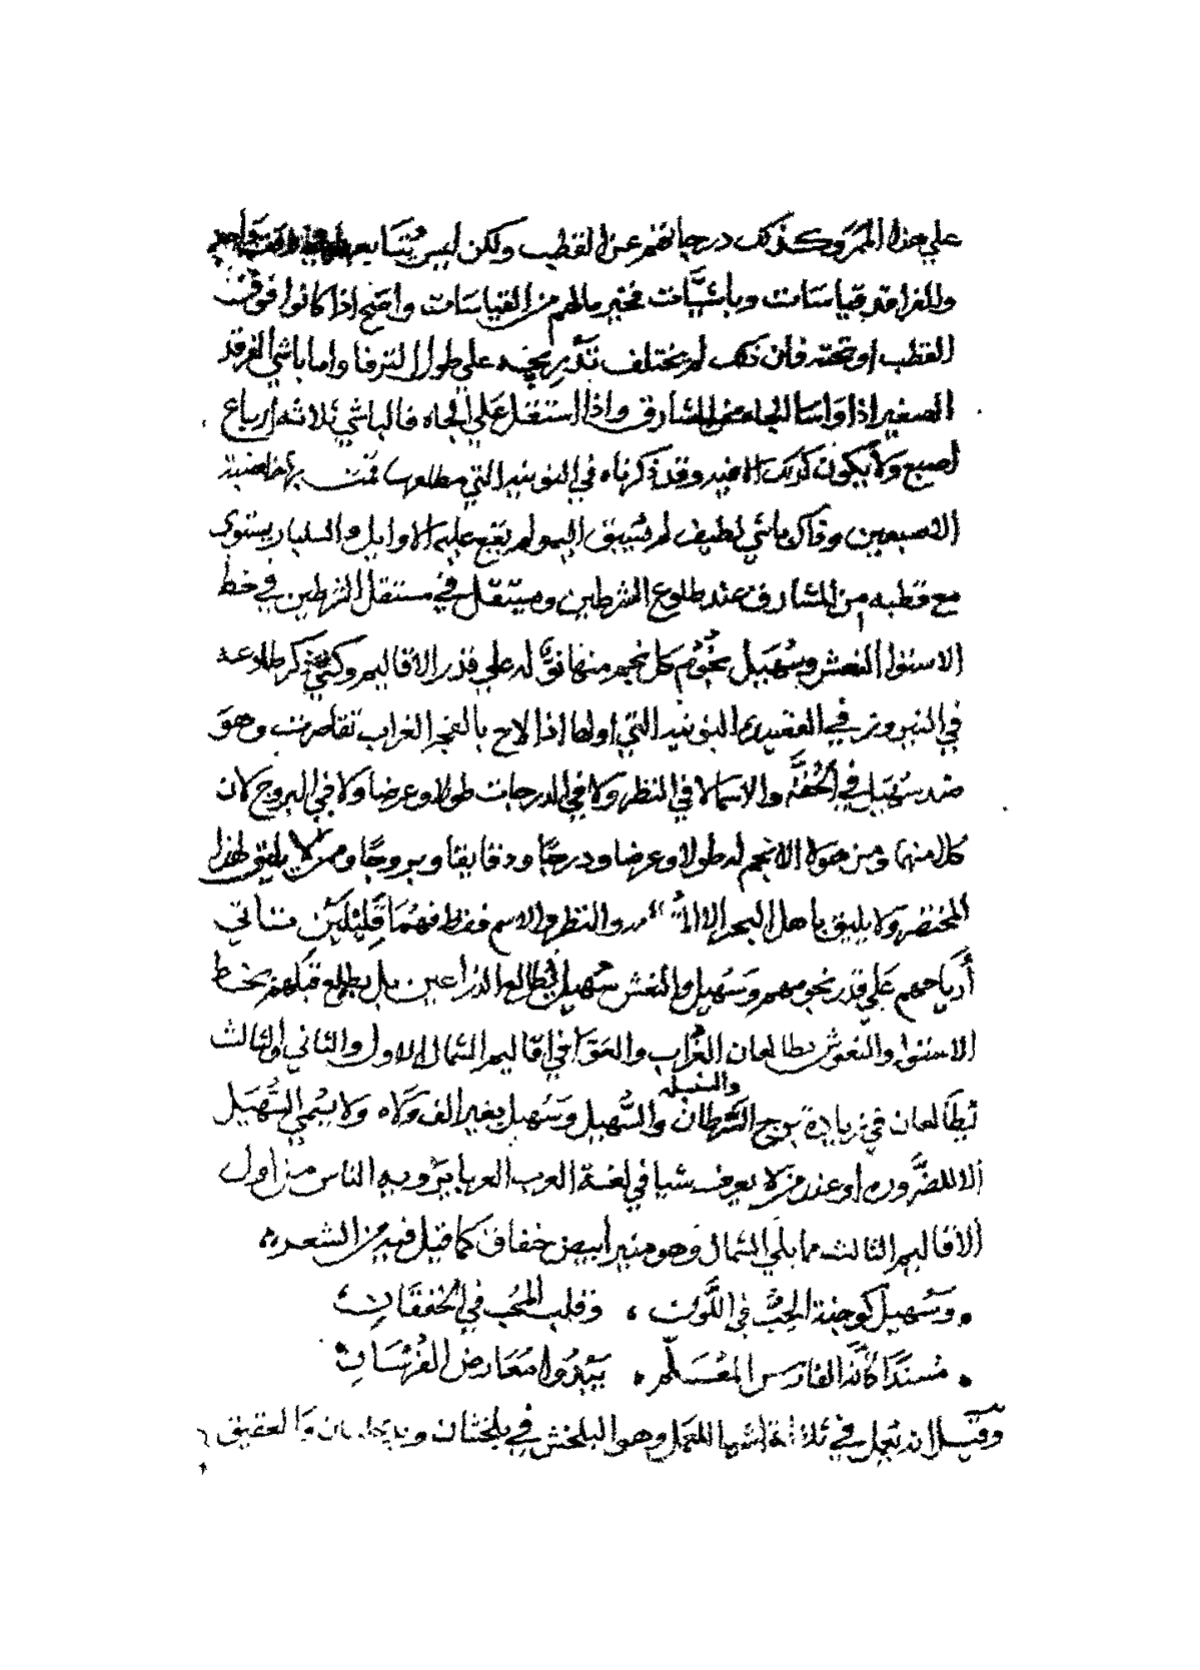 علي هذا الممر وكذلك درجاتهم عن القطب ولكن ليس بتتابع
وللفراقد قياسات وباشيات فخير مالهم من القياسات واصح اذا كانوا فوق
القطب او تحته فان ذلك لم يختلف علي طول الترفا واما باشي الفرقد
الصغير اذا واسا الجاه من المشارق واذا استقل علي الجاه فالباشي ثلاثه ارباع
اصبع ولا يكون كذلك الاخير وقد ذكرناه في النونيه التي مطلعها تمت بها ضيقة
الاصبعين وذاك باشي لطيف لم يسبق اليه ولم يقع عليه الاوايل والسلبار يستوي
مع قطبه من المشارق عند طلوع الشرطين ويستقل في مستقل الشرطين في خط
الاستوا النعش وسهيل نجوم كل نجم منها نو له علي قدر الاقاليم وكني ذكر طلاعه
في النيروز في القصيده النونيه التي اولها اذا لاح بالفجر الغراب تقاصرت وهو
ضد سهيل في الخفة والاسما لا في النظر ولا في الدرجات طولا وعرضا ولا في البروج لان
كلا منها ومن هولا الانجم له طولا وعرضا ودرجا ودقايقا وبروجا ومن لا يليق لهذا
المختصر ولا يليق باهل البحر الا والنظر والاسم فقط فهما قليلين تتاتي
أرياحهم علي قدر نجومهم وسهيل والنعش سهيل يطالع الذراعين بل يطلع قبلهم بخط
الاستوا والنعوش يطالعان الغراب والعوا في اقاليم الشمال الاول والثاني والثالث
يطالعان في زيادة برج السرطان والسنبله والسهيل وسهيل بغير الف ولاه ولا يسمي السهيل
الا للضروره او عند من لا يعرف شيا في لغة العرب العربا يرويه الناس من اول
الاقاليم الثالث مما يلي الشمال وهو منير أبيض خفاق كما قيل فيه من الشعر
وسهيل كوجنة الحب في اللون ، وقلب المحب في الخفقان
مستبدا كانه الفارس المعلم ، يبدوا معارض الفرسان
وقيل انه يعمل في ثلاثة اشيا للعمل وهو البلخش في بلخشان والعقيق